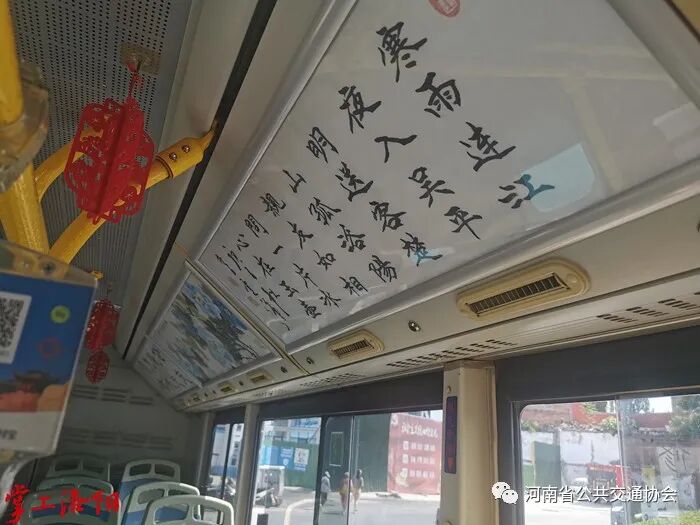 寒雨连江
夜入吴平
明送客楚
山孤洛陽
親友如相
問一片冰
心在玉壶
掌上洛阳
河南省公共交通协会